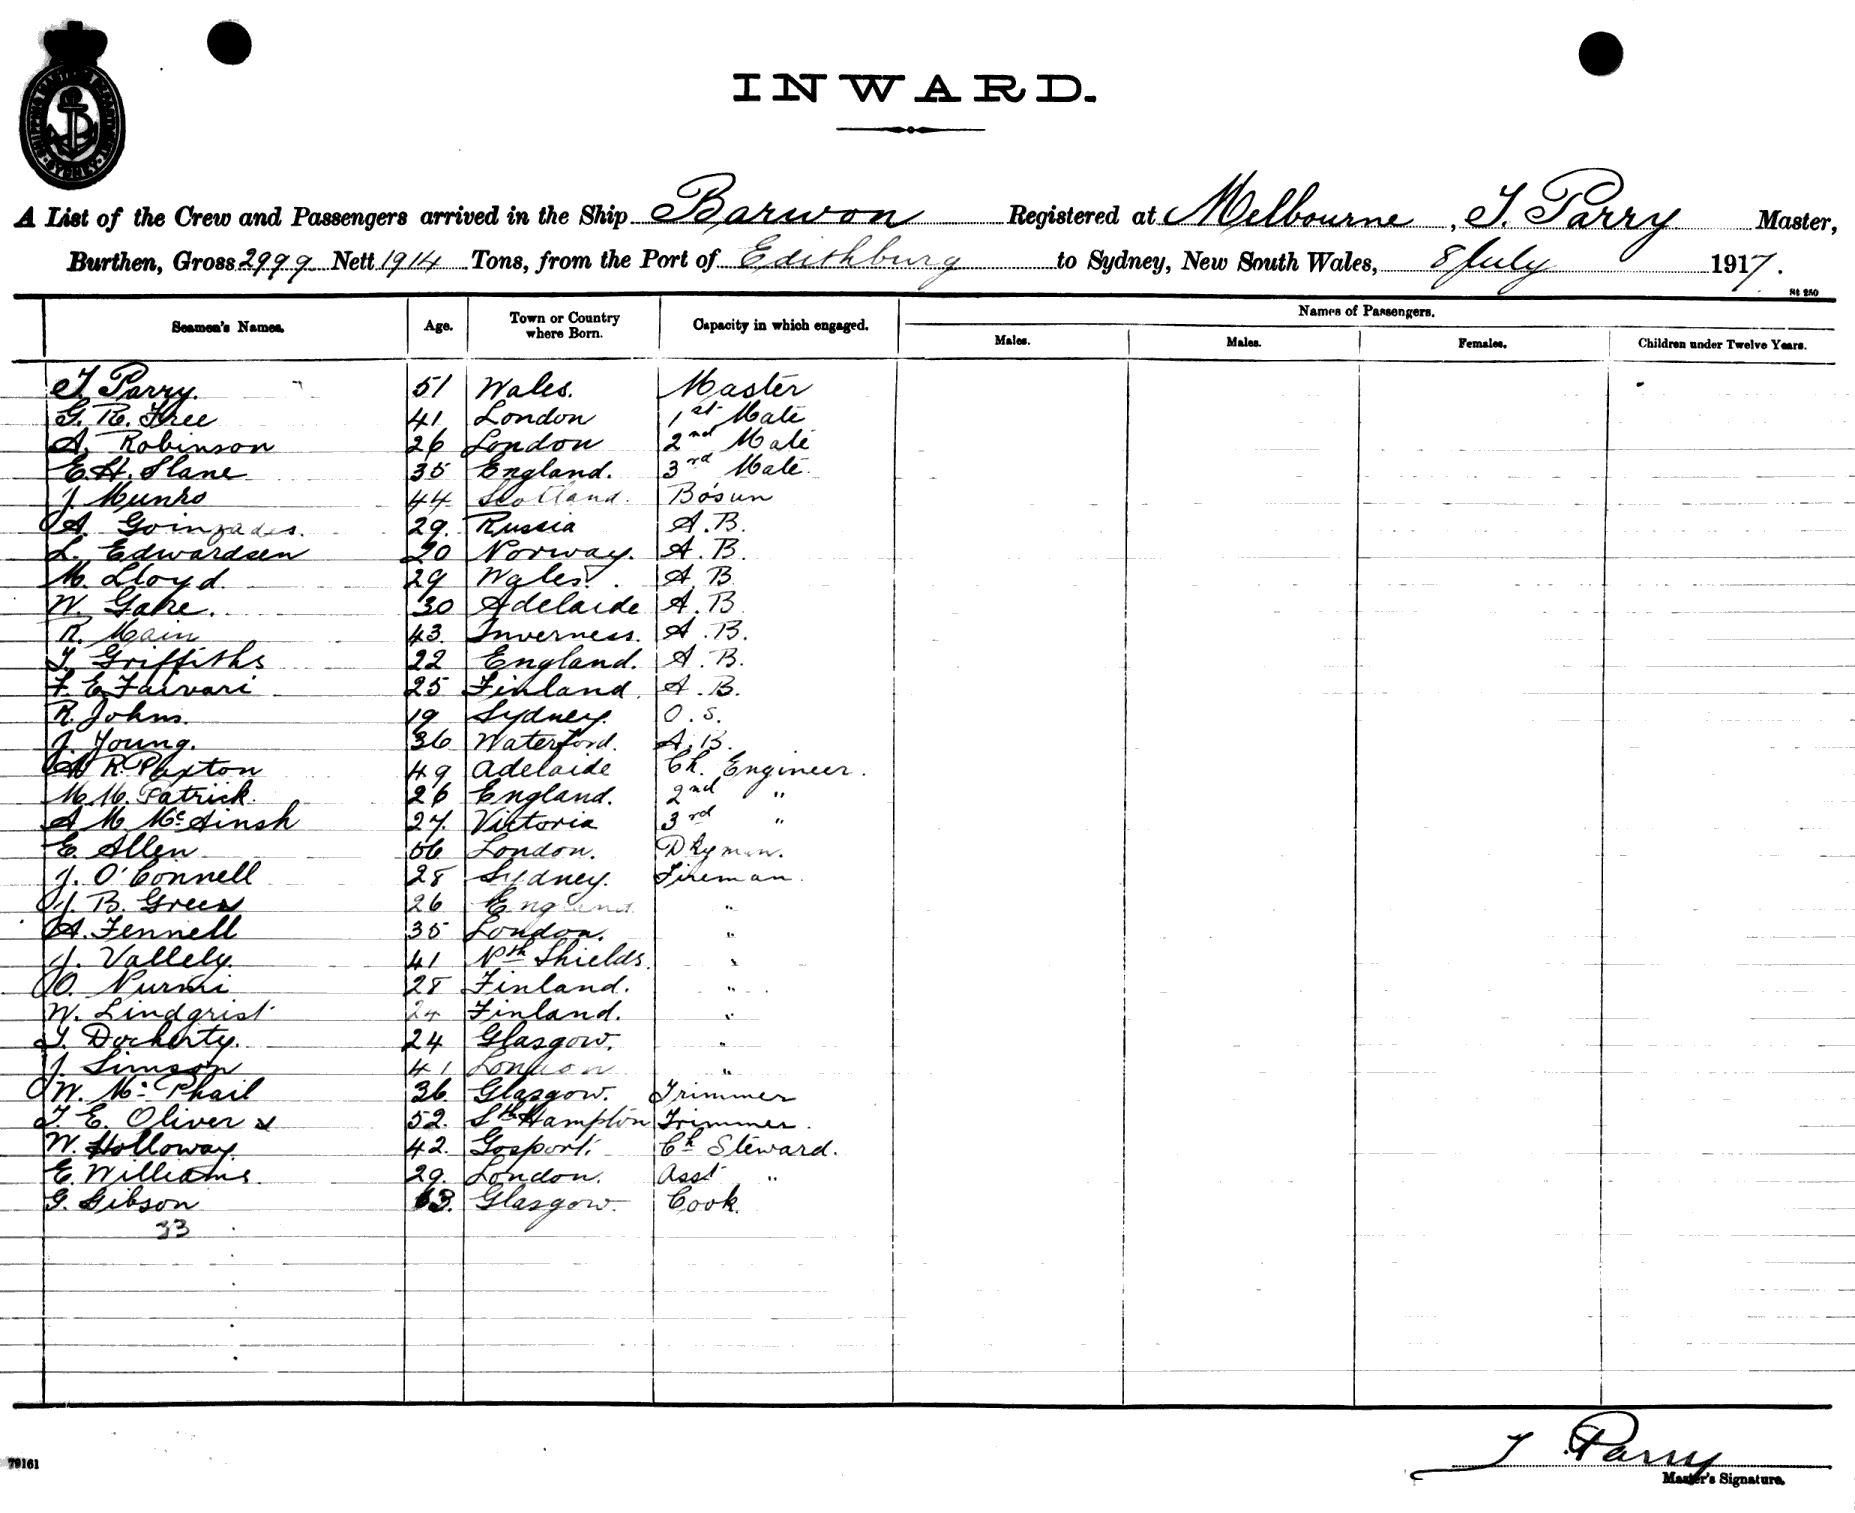 SHIPPING MASTER'S DEPARTMENT SYDNEY
INWARD.
A List of the Crew and Passengers arrived in the Ship Barwon Registered at Melbourne, T. Parry Master,
Burthen, Gross 2999 Nett 1914 Tons, from the Port of Edithburg to Sydney, New South Wales, 8 July 1917.
St 250
Seamen's Names. Age. Town or Country where Born. Capacity in which engaged. Names of Passengers.
Males. Males. Females. Children under Twelve Years.
T. Parry. 51 Wales. Master
G. R. Free 41 London 1st Mate
A. Robinson 26 London 2nd Mate
E. H. Slane 35 England. 3rd Mate
J. Munro 44 Scotland. Bosun
A. 29. Russia A.B.
L. Edwardsen 20 Norway. A.B.
M. Lloyd. 29 Wales. A.B
W. Gake. 30 Adelaide A.B
R. Main 43. Inverness. A.B.
T. Griffiths 22 England. A.B.
F. E. Faivari 25 Finland. A.B.
R. Johns. 19 Sydney. O.S.
J. Young. 36 Waterford. A.B.
A. R. Paxton 49 Adelaide Ch. Engineer.
M. M. Patrick. 26 England. 2nd "
A M McAinsh 27. Victoria 3rd "
E. Allen 56 London. Dkyman.
J. O'Connell 28 Sydney. Fireman.
J. B. Green 26 England "
A. Fennell 35 London. "
J. Vallely 41 Nth Shields. "
O. Nurmi 28 Finland. "
W. Lindqrist 24 Finland. "
T. Docherty. 24 Glasgow. "
J. Simson 41 London "
W. McPhail 36. Glasgow. Trimmer
T. E. Oliver 52. Sth Hampton Trimmer.
W. Holloway. 42. Gosport. Ch Steward.
E. Williams. 29. London. Asst "
G. Gibson 63. Glasgow. Cook.
33
T Parry
79161
Master's Signature.